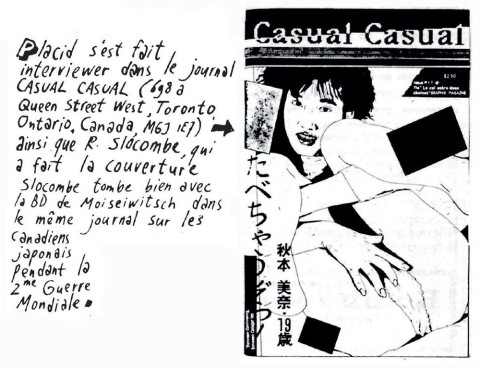 Placid s'est fait
interviewer dans le journal
CASUAL CASUAL (698 a
Queen Street West, Toronto
Ontario, Canada, M6J 1E7)
ainsi que R. Slocombe, qui
a fait la couverture
Slocombe tombe bien avec
la BD de Moiseiwitsch dans
le même journal sur les
Canadiens
japonais
pendant la
2me Guerre
Mondiale.
Casual Casual
$2.50
GRAPHIC MAGAZINE
たべちゃうぞっ!
秋本美奈・19歳